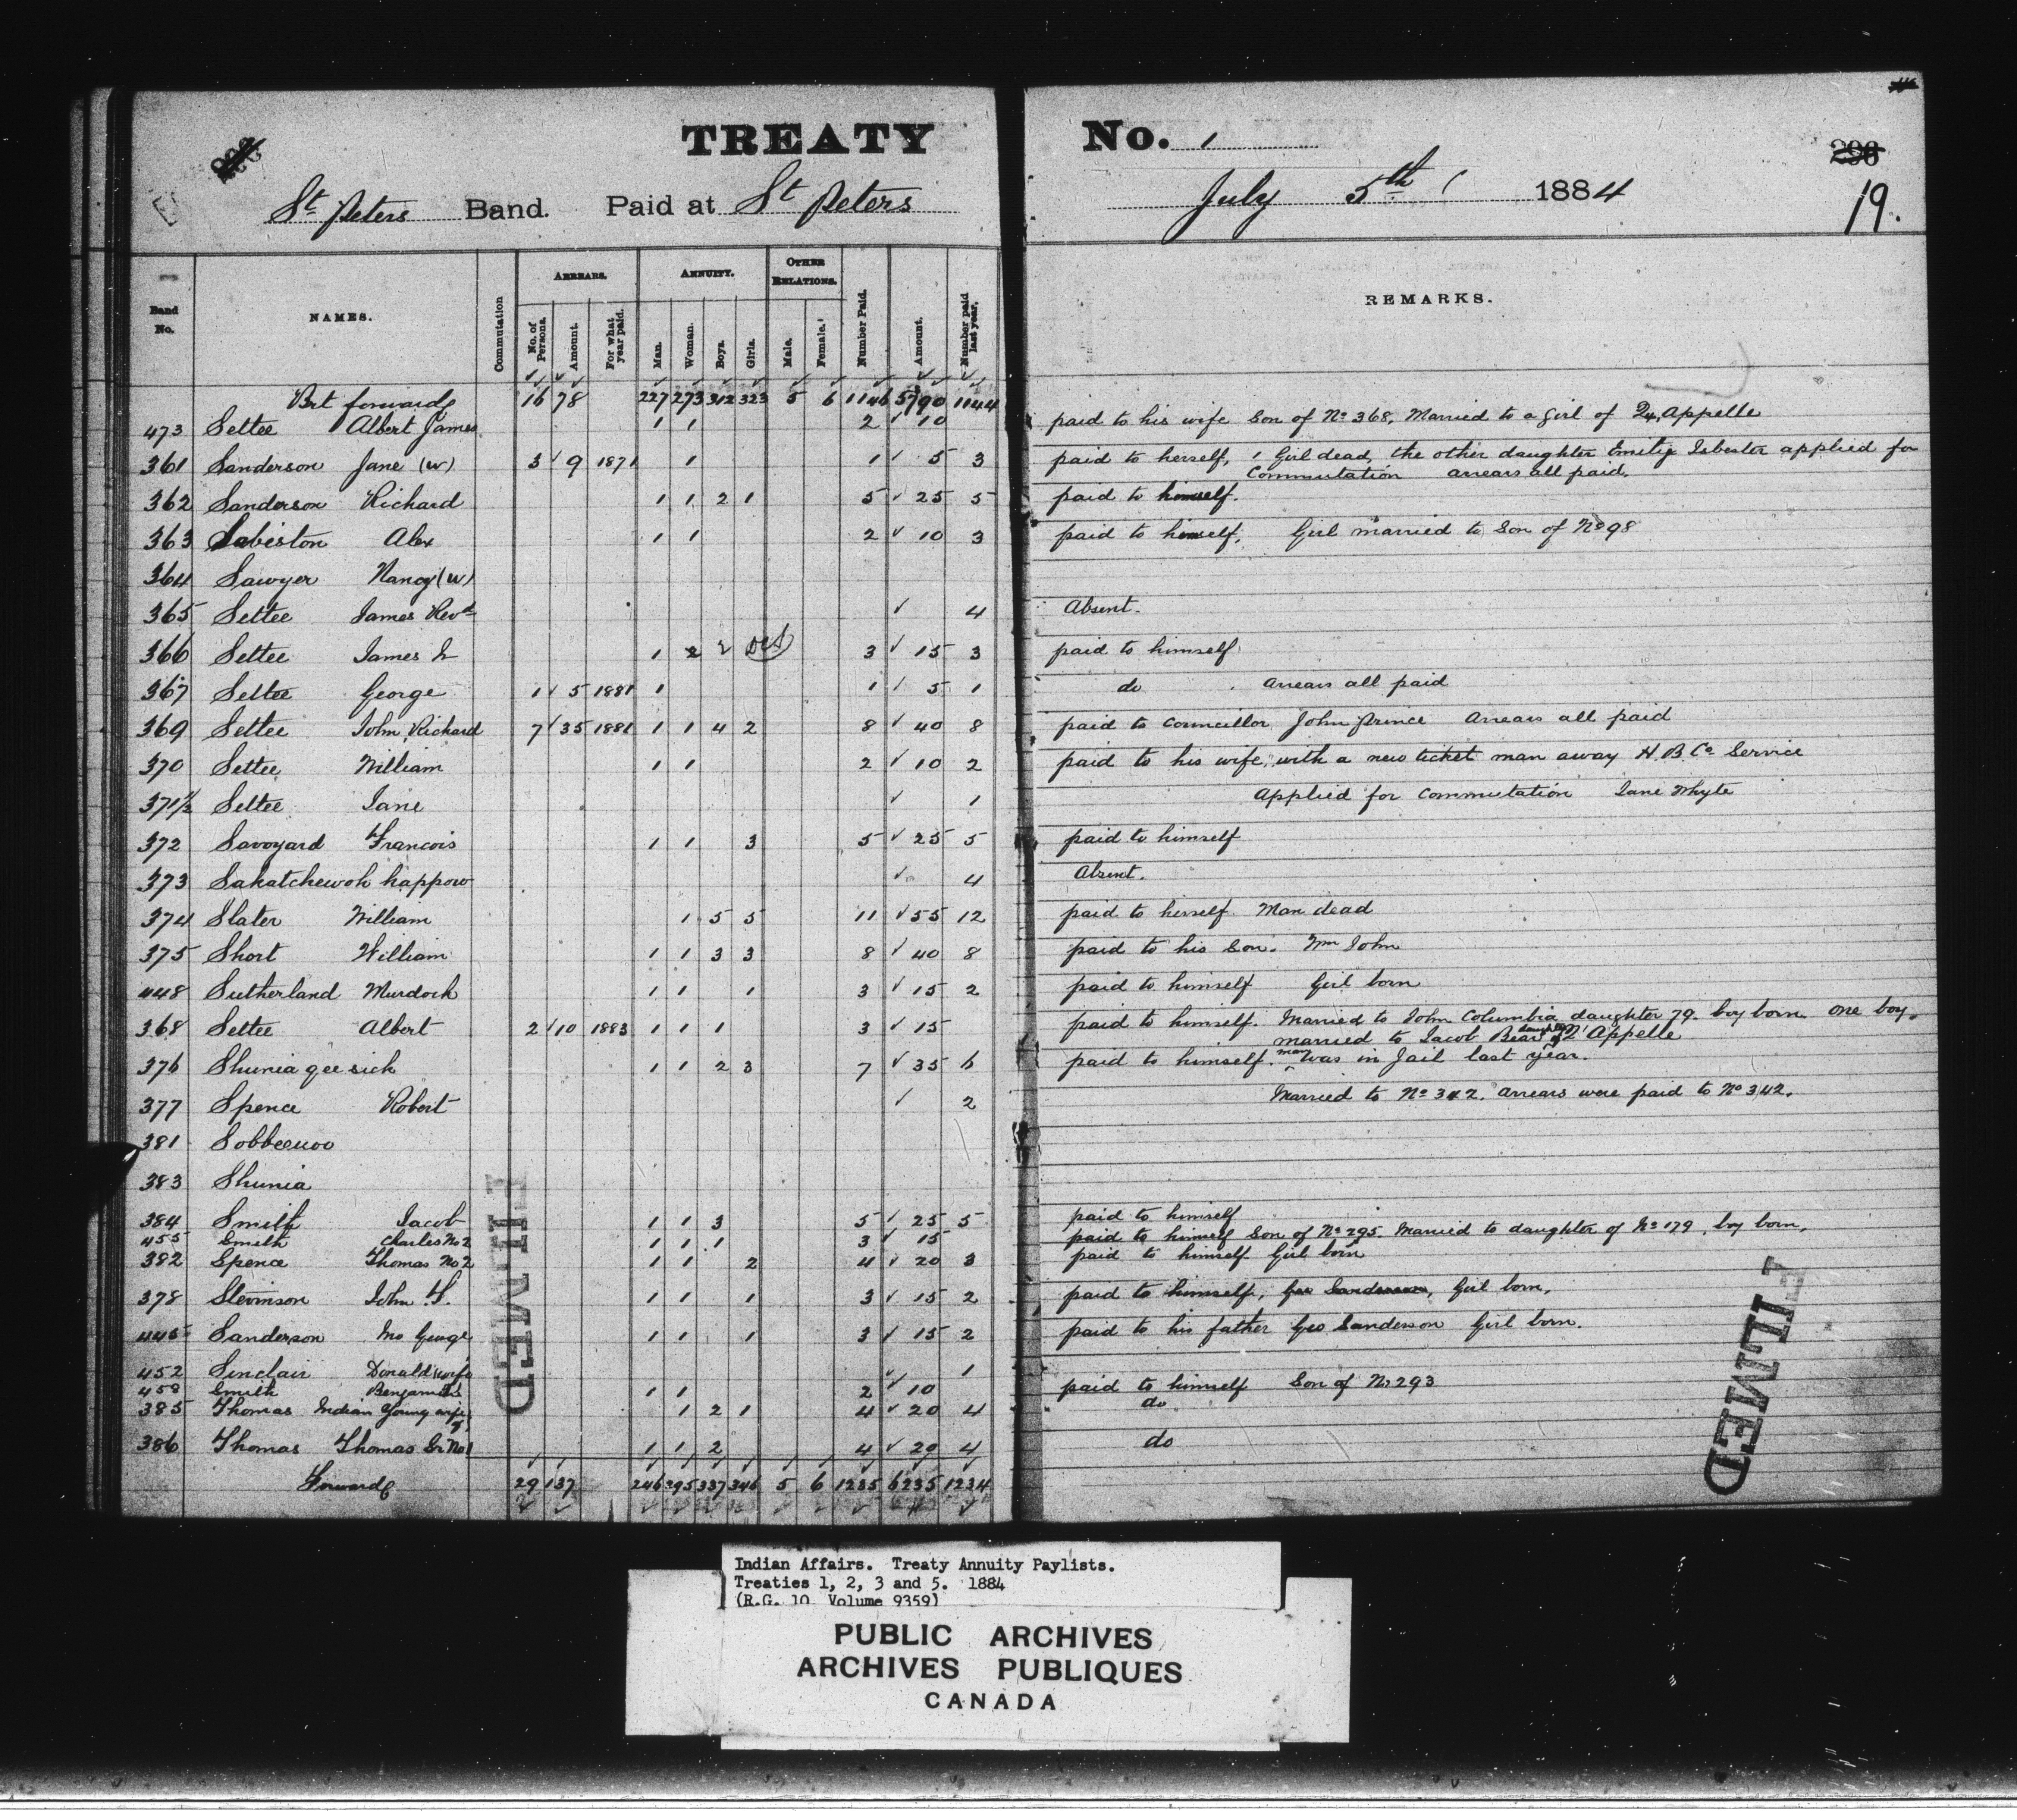 TREATY No. 1
296
19.
St Peters Band. Paid at St Peters July 5th 1884
Band No. NAMES. Commutation ARREARS. No. of Persons. Amount. For what year paid. ANNUITY. Man. Woman. Boys. Girls. OTHER RELATIONS. Male. Female. Number Paid. Amount. Number paid last year. REMARKS.
Brt forward 16 78 227 273 312 323 5 6 1146 5790 1144
473 Settee Albert James 1 1 2 10 paid to his wife Son of No 368, Married to a girl of Qu,Appelle
361 Sanderson Jane (W) 3 9 1871 1 1 5 3 paid to herself, 1 Girl dead, the other daughter Isbester applied for
Commutation arrears all paid.
362 Sanderson Richard 1 1 2 1 5 25 5 paid to himself.
363 Sabiston Alex 1 1 2 10 3 paid to himself, Girl married to Son of No 98
364 Sawyer Nancy (W)
365 Settee James Revd 4 Absent.
366 Settee James Jr 1 2 3 15 3 paid to himself
367 Settee George 1 5 1881 1 1 5 1 do Arrears all paid
369 Settee John Richard 7 35 1881 1 1 4 2 8 40 8 paid to Councillor John Prince Arrears all paid
370 Settee William 1 1 2 10 2 paid to his wife, with a new ticket man away H.B.Co Service
371 1/2 Settee Jane 1 Applied for Commutation Jane Whyte
372 Savoyard Francois 1 1 3 5 25 5 paid to himself
373 Sakatchewoh happow 4 Absent.
374 Slater William 1 5 5 11 55 12 paid to herself Man dead
375 Short William 1 1 3 3 8 40 8 paid to his Son. Wm John
448 Sutherland Murdoch 1 1 1 3 15 2 paid to himself Girl born
368 Settee Albert 2 10 1883 1 1 1 3 15 paid to himself. Married to John Columbia daughter 79. boy born. One boy
married to Jacob Bear daughter of Q'Appelle
376 Shunia gee sick 1 1 2 3 7 35 6 paid to himself. man was in Jail last year.
377 Spence Robert 2 Married to No 342. Arrears were paid to No 342.
381
383 Shunia
384 Smith Jacob 1 1 3 5 25 5 paid to himself
455 Smith Charles No 2 1 1 1 3 15 paid to himself Son of No 295. Married to daughter of No 179, boy born,
382 Spence Thomas No 2 1 1 2 4 20 3 paid to himself Girl born
378 Stevinson John 1 1 1 3 15 2 paid to himself, Geo Sanderson, Girl born,
445 Sanderson Jno George 1 1 1 3 15 2 paid to his father Geo Sanderson Girl born.
452 Sinclair Donald (wife 1
458 Smith Benjamin 1 1 2 10 paid to himself Son of No 293
385 Thomas Indian Young wife of 1 2 1 4 20 4 do
386 Thomas Thomas Sr No 1 1 1 2 4 20 4 do
Forward 29 137 246 295 337 346 5 6 1235 6235 1234
FILMED
FILMED
Indian Affairs. Treaty Annuity Paylists.
Treaties 1, 2, 3 and 5. 1884
(R.G. 10 Volume 9359)
PUBLIC ARCHIVES
ARCHIVES PUBLIQUES
CANADA